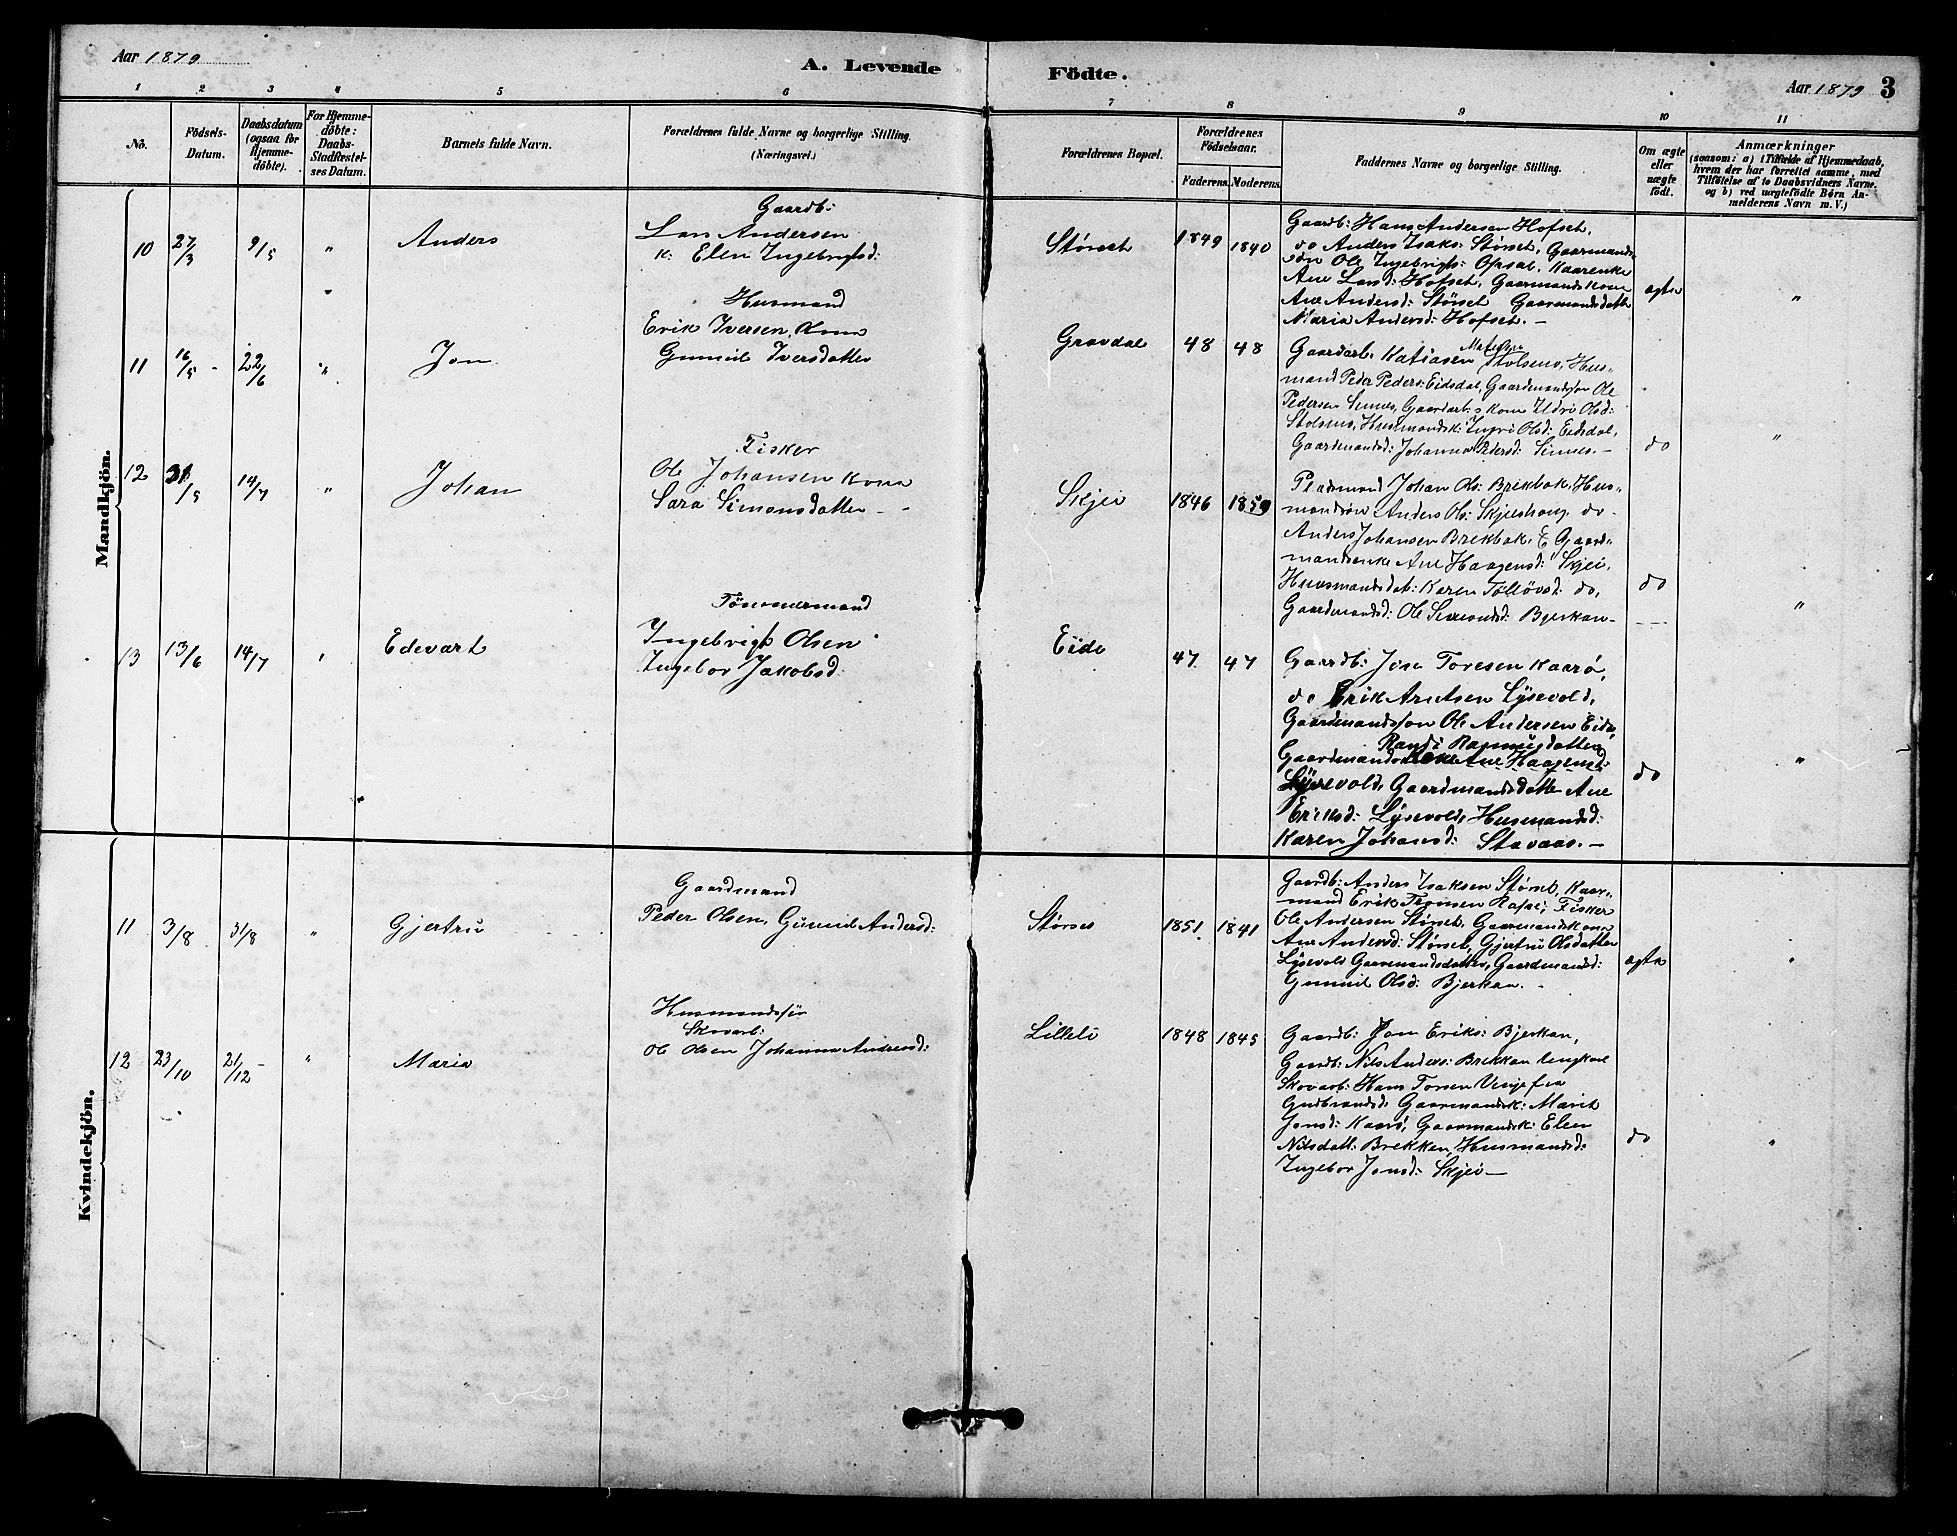 Aar 1879
A. Levende Födte.
Aar 1879 3
1 2 3 4 5 6 7 8 9 10 11
No.
Födsels-Datum.
Daabsdatum (ogsaa for Hjemme-döbte).
For Hjemme-döbte: Daabs-Stadfæstel-ses Datum.
Barnets fulde Navn.
Forældrenes fulde Navne og borgerlige Stilling.
(Næringsvei.)
Forældrenes Bopæl.
Forældrenes Födselsaar.
Faderens. Moderens.
Faddernes Navne og borgerlige Stilling.
Om ægte eller uægte födt.
Anmærkninger
(saasom: a) i Tilfælde af Hjemmedaab,
hvem der har forrettet samme, med
Tilföielse af to Daabsvidners Navne.
og b) ved uægtefödte Börn An-
melderens Navn m. V.)
Mandkjön.
10 27/3 9/5 " Anders
Gaardb:
Lars Andersen
K: Elen Ingebrigtsd:
Störset 1849 1840
Gaardb: Hans Andersen Hofset,
do Anders Isaks: Störset, Gaarmands
sön Ole Ingebrigts: Opsal,
Ane Larsd: Hofset, Gaarmandskone
Ane Andersd: Störset Gaarmandsdatter
Maria Andersd: Hofset. —
ægte "
11 16/5 - 22/6 " Jon
Husmand
Erik Iversen, Kone
Gunnil Iversdatter
Gravdal 48 48
Gaardarb.
mand Peder Peders: Eidsdal, Gaardmandssön Ole
Pedersen Sinnes, Gaardarb:s kone Ildri Olsd:
Husmandsk: Ingri Olsd: Eidsdal,
Gaardmandsd: Johanna Pedersd: Sinnes. —
do "
12 31/5 14/7 " Johan
Fisker
Ole Johansen Kone
Sara Simonsdatter - -
Skjei 1846 1859
Pladsmand Johan Ols: Brekbak, Hus-
mandsön Anders Ols: Skjeishaug do.
Anders Johansen Brekbak, Gaard-
mandsenke Ane Haagensd: Skjei,
Husmandsdat: Karen Tolløvsd: do,
Gaardmandsd: Ole Bjerkan —
do "
13 13/6 14/7 " Edevart
Tömmermand
Ingebrigt Olsen
Ingebor Jakobsd:
Eide 47 47
Gaardb: Jon Toresen Kaarö,
do Erik Arntsen Lysevold,
Gaardmandssön Ole Andersen Eide,
Randi Rasmusdatter
Gaardmandskone Ane Haagensd:
Lysevold, Gaardmandsdatter Ane
Eriksd: Lysevold, Husmandsd:
Karen Johansd: Stavaas. —
do "
Kvindekjön.
11 3/8 31/8 " Gjertru
Gaardmand
Peder Olsen, Gunnil Andersd:
Störset 1851 1841
Gaardb: Anders Isaksen Störset, Kaar-
mand Erik Fisker
Ole Andersen Störset, Gaarmandskone
Ane Andersd: Störset, Gjertru Olsdatter
Lysevold Gaarmandsdatter, Gaardmandsd:
Gunnil Olsd: Bjerkan. -
ægte "
12 23/10 21/12 - " Maria
Husmandssön
Skovarb:
Ole Olsen Johanna Andersd:
Lilleli 1848 1845
Gaardb: Jon Eriks: Bjerkan,
Gaardb: Nils Anders: Brekkan Ungkarl
Skovarb: Hans fra
Gudbrandsd. Gaarmandsk: Marit
Jonsd: Kaarö, Gaarmandsk: Elen
Nilsdatt: Brekken, Husmandsd:
Ingebor Jonsd: Skjei —
do "